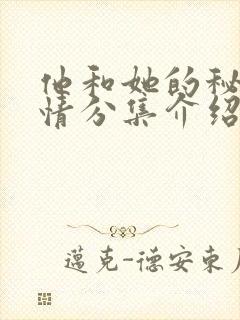 他和她的秘
情分集介绍
邁克-德安東尼